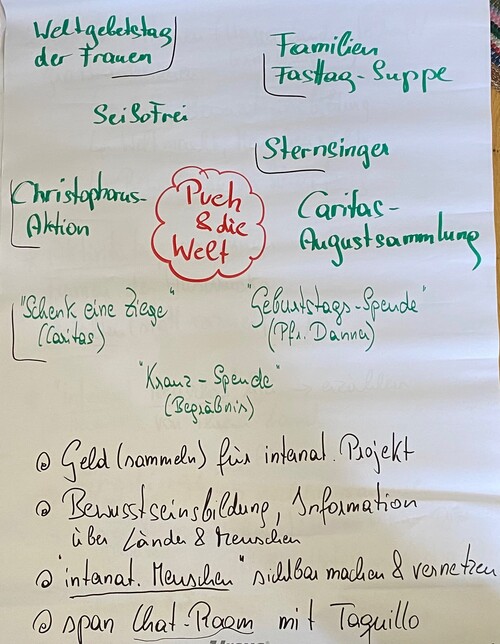 Weltgebetstag
der Frauen
Familien
Fasttag-Suppe
SeiSoFrei
Sternsinger
Christophorus-
Aktion
Puch
& die
Welt
Caritas-
Augustsammlung
"Schenk eine Ziege"
(Caritas)
"Geburtstags-Spende"
(Pfr. Danner)
"Kranz-Spende"
(Begräbnis)
Geld (sammeln) für internat. Projekt
Bewusstseinsbildung, Information
über Länder & Menschen
"internat. Menschen" sichtbar machen & vernetzen
span Chat-Room mit Taquillo